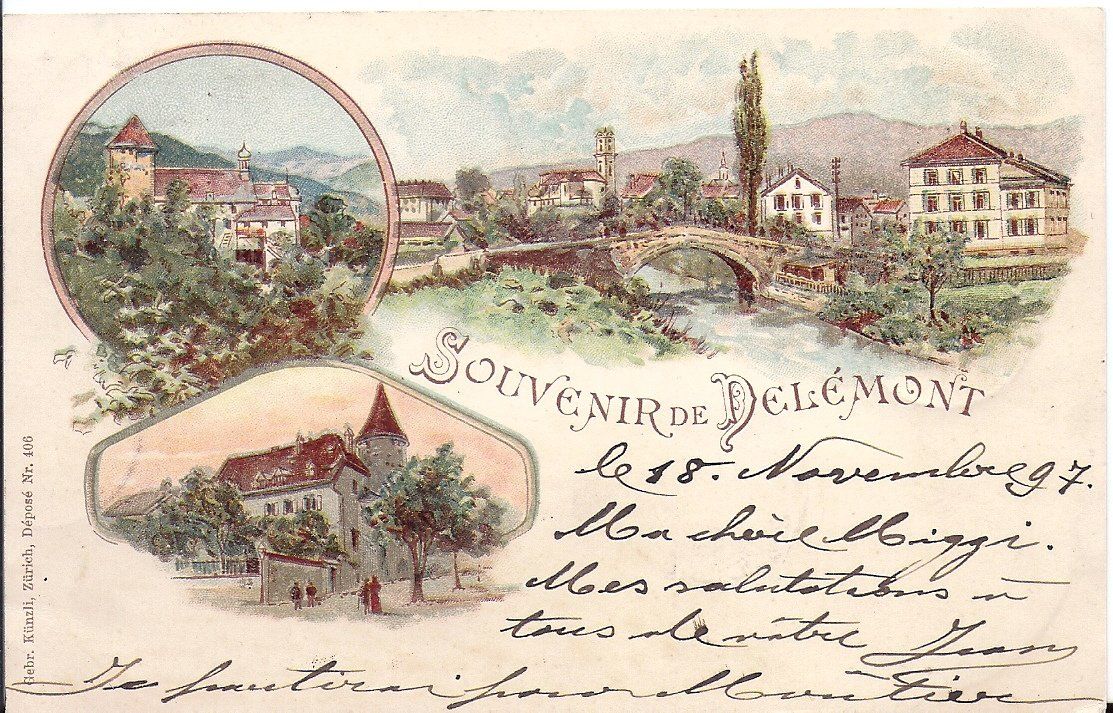 SOUVENIR DE DELÉMONT
le 18. Novembre 97.
Ma chère Miggi.
Mes salutations à
tous de votre Jean
Je partirai pour Moutier
Gebr. Künzli, Zürich, Déposé Nr. 406